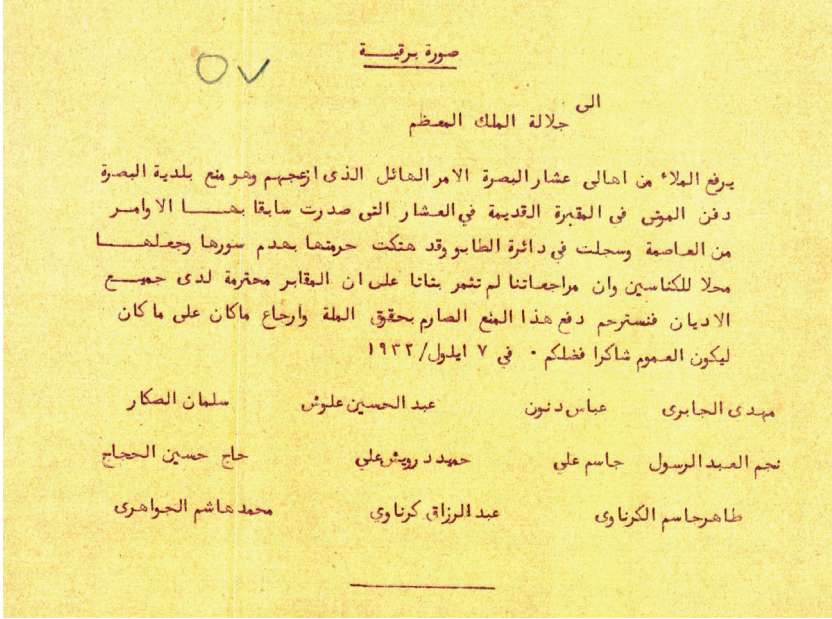 صورة برقيــة
٥٧
الى
جلالة الملك المعظم
يرفع الملاء من اهالى عشار البصرة الامر الهائل الذى ازعجهم وهو منع بلدية البصرة
دفن الموتى فى المقبرة القديمة في العشار التى صدرت سابقا بهــا الاوامــر
من العاصمة وسجلت في دائرة الطابو وقد هتكت حرمتها بهدم سورها وجعلهــا
محلا للكناسين وان مراجعاتنا لم تثمر بتاتا على ان المقابر محترمة لدى جميــع
الاديان فنسترحم دفع هذا المنع الصارم بحقوق الملة وارجاع ماكان على ماكان
ليكون العموم شاكرا فضلكم . في ٧ ايلول/١٩٣٢
مهدى الجابرى عباس دنون عبد الحسين علوش سلمان الصكار
نجم العبد الرسول جاسم علي حميد درويش علي حاج حسين الحجاج
طاهر جاسم الكرناوى عبد الرزاق كرناوي محمد هاشم الجواهرى